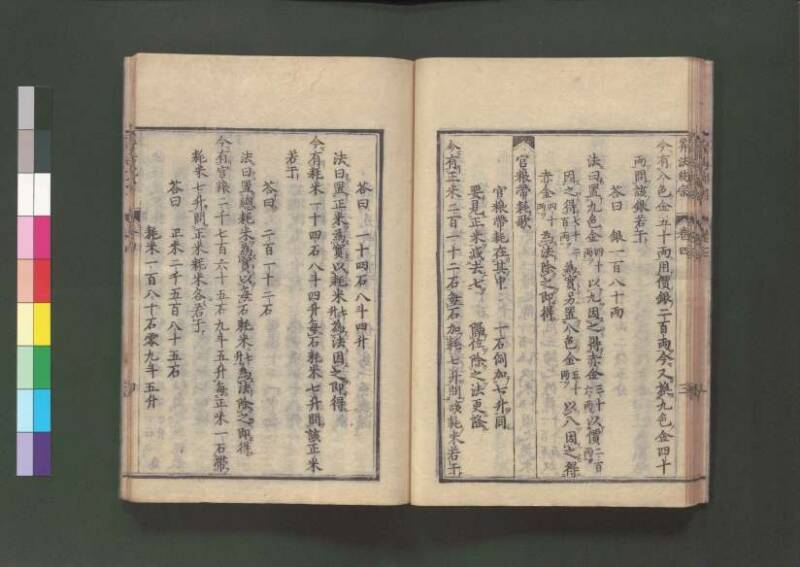 今有八色金五十兩用價銀二百兩今又換九色金四十
兩問該銀若干
答曰　銀一百八十兩
法曰置九色金四十兩以九因之得赤金三十六兩以價二百
因之得七千二百兩為實另置八色金五十兩以八因之得
赤金四十兩為法除之即得
官粮帶耗歌
官粮帶耗在其中　一石例加七升同
要見正米減去七　隔位除之法更隆
今有正米二百一十二石每石加耗七升問該耗米若干
答曰　一十四石八斗四升
法曰置正米為實以耗米七升為法因之即得
今有耗米一十四石八斗四升每石耗米七升問該正米
若干
答曰　二百一十二石
法曰置總耗米為實以每石耗米七升為法除之即得
今有官粮二千七百六十五石九斗五升每正米一石帶
耗米七升問正米耗米各若干
答曰　正米二千五百八十五石
耗米一百八十石零九斗五升
算法統宗
卷四
三